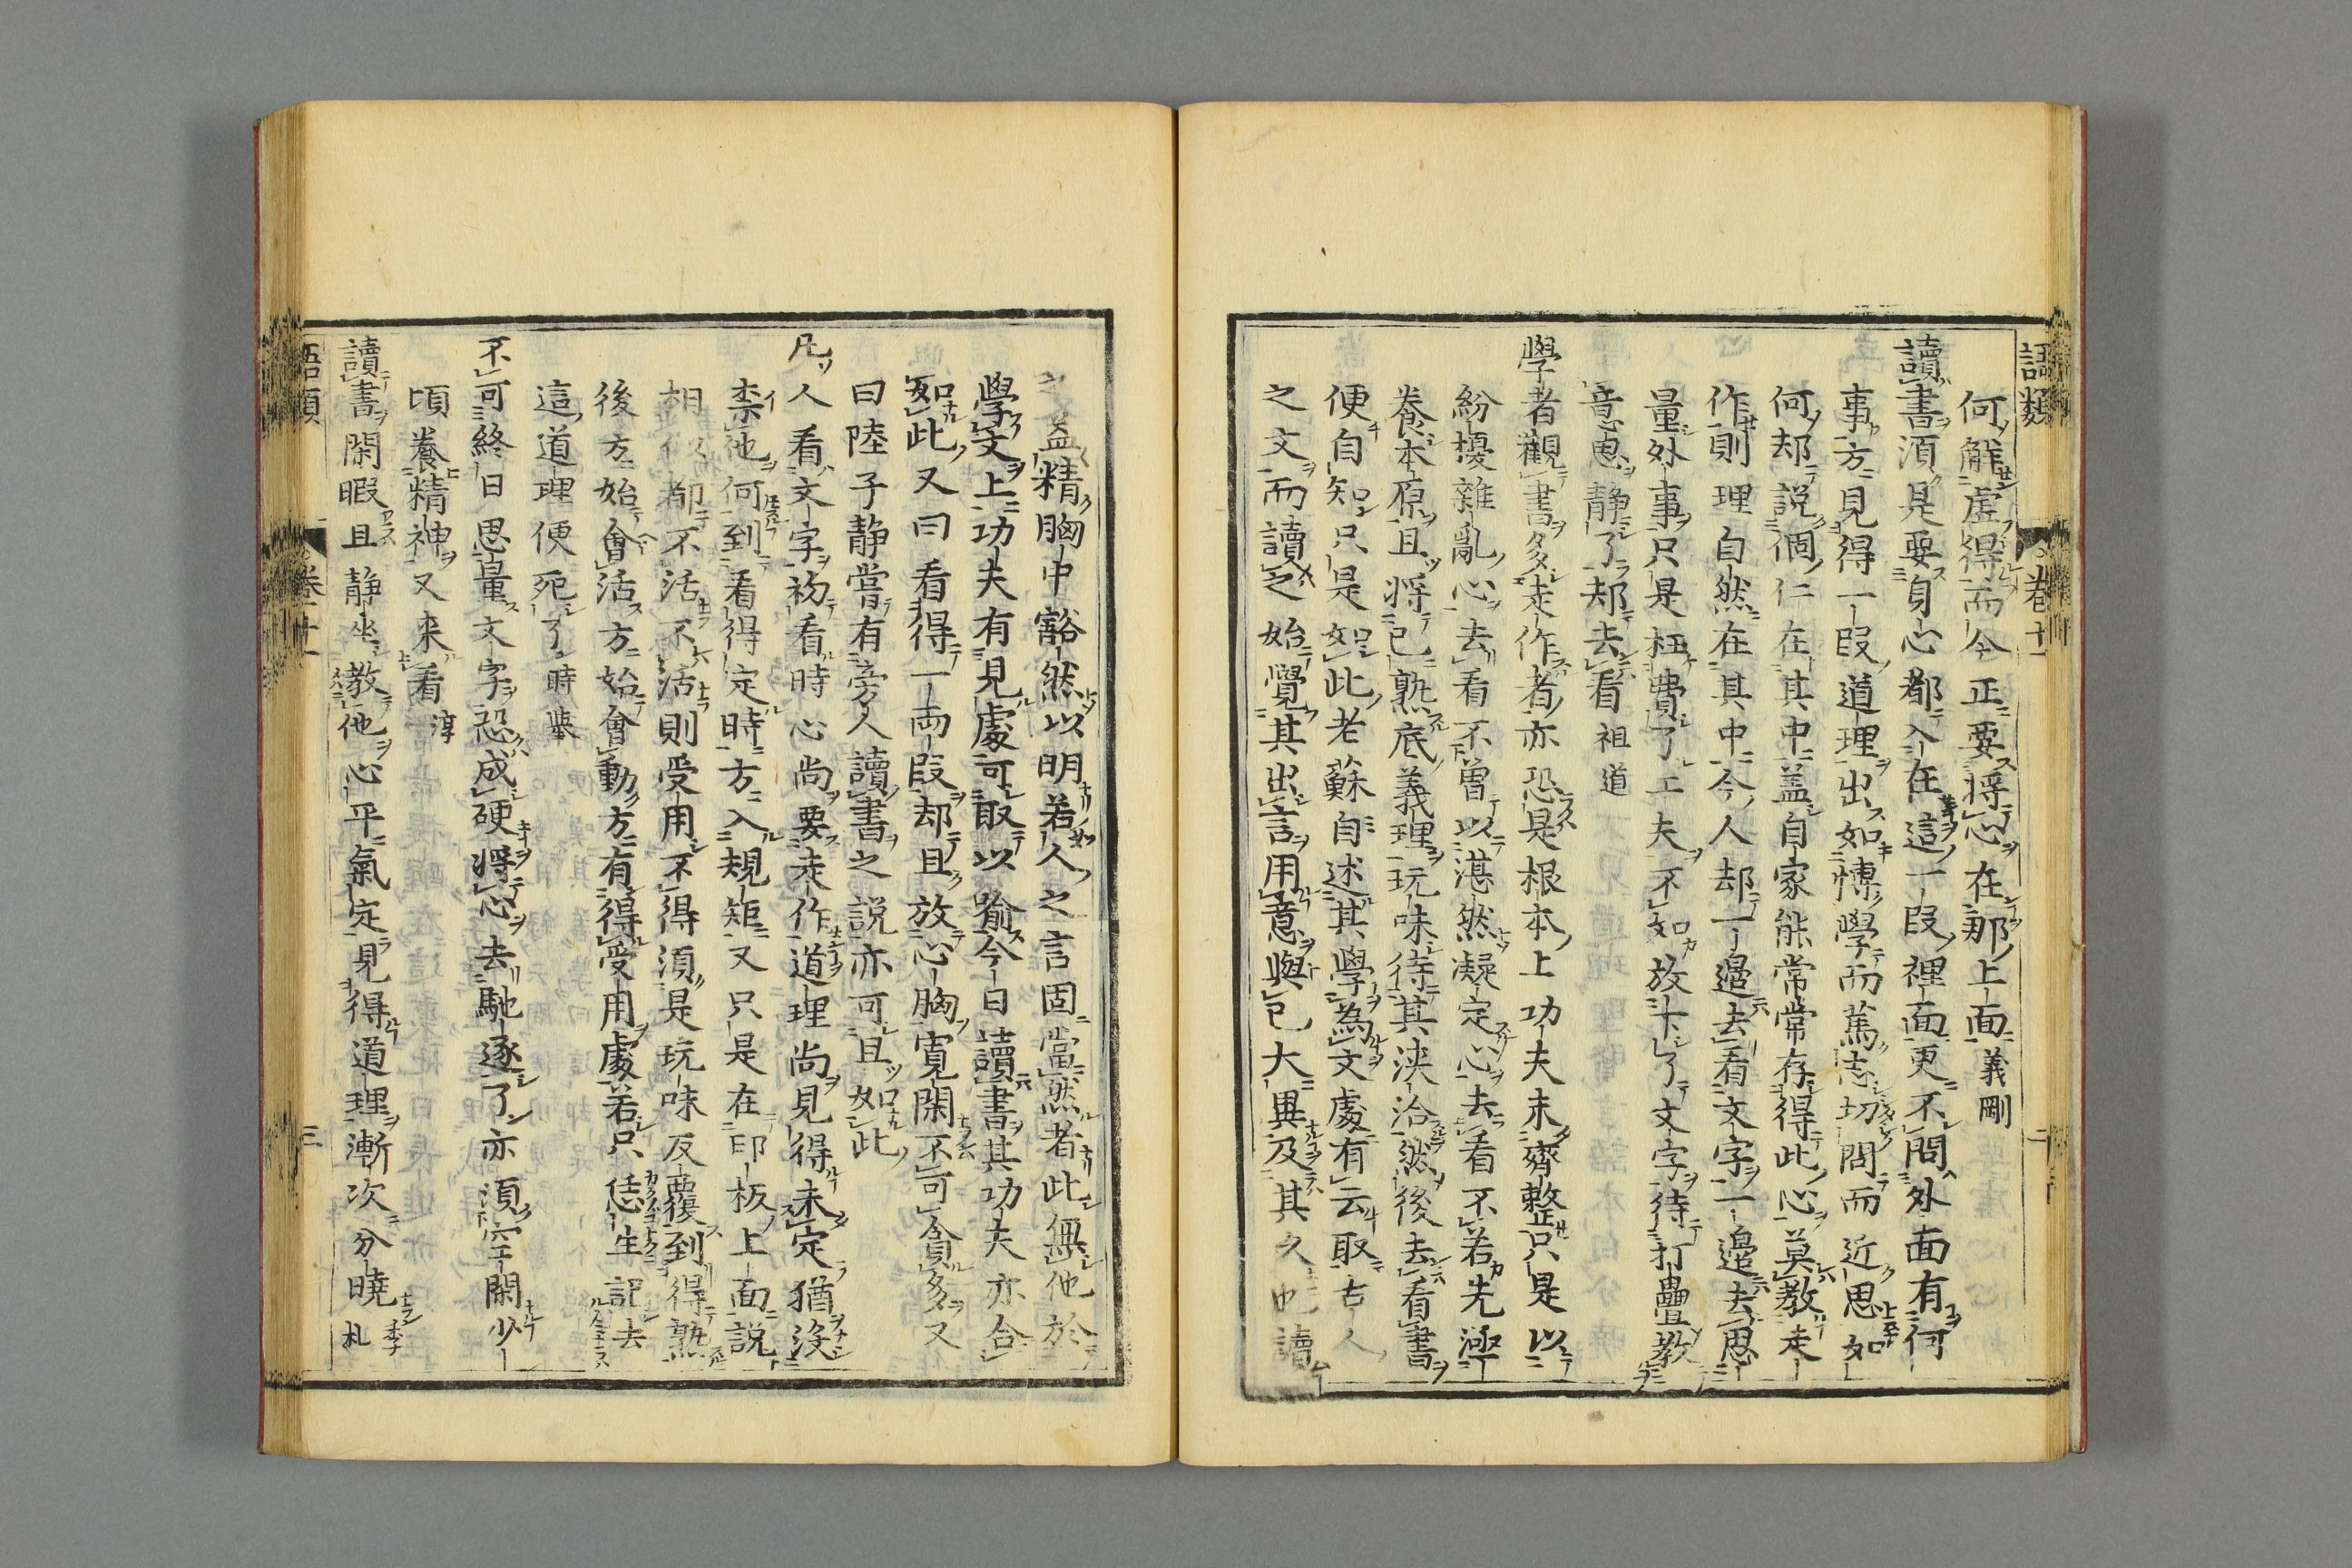 語類 卷十一 二
何解虛得而今正要將心在那上面義剛
讀書須是要身心都入在這一段裡面更不問外面有何
事方見得一段道理出如博學而篤志切問而近思如
何却説個仁在其中盖自家能常常存得此心莫教走
作則理自然在其中今人却一邉去看文字一邉去思
量外事只是枉費了工夫不如放下了文字待打疊教
意思静了却去看祖道
學者觀書多走作者亦恐是根本上功夫未齊整只是以
紛擾雜亂心去看不曽以湛然凝定心去看不若先涵
養本原且將已熟底義理玩味待其浹洽然後去看書
便自知只是如此老蘇自述其學為文處有云取古人
之文而讀之始覺其出言用意與己大異及其久也讀
之益精胸中豁然以明若人之言固當然者此無他於
學文上功夫有見處可取以喻今日讀書其功夫亦合
如此又曰看得一両段却且放心胸寛閑不可貪多又
曰陸子静嘗有旁人讀書之説亦可且如此
凡人看文字初看時心尚要走作道理尚見得未定猶没
柰他何到看得定時方入規矩又只是在印板上面説
相似都不活不活則受用不得須是玩味反覆到得熟
後方始會活方始會動方有得受用處若只恁生記去
這道理便死了時舉
不可終日思量文字恐成硬將心去馳逐了亦須空閑少
頃養精神又来看淳
讀書閑暇且静坐教他心平氣定見得道理漸次分曉季札
語類 卷十一 三